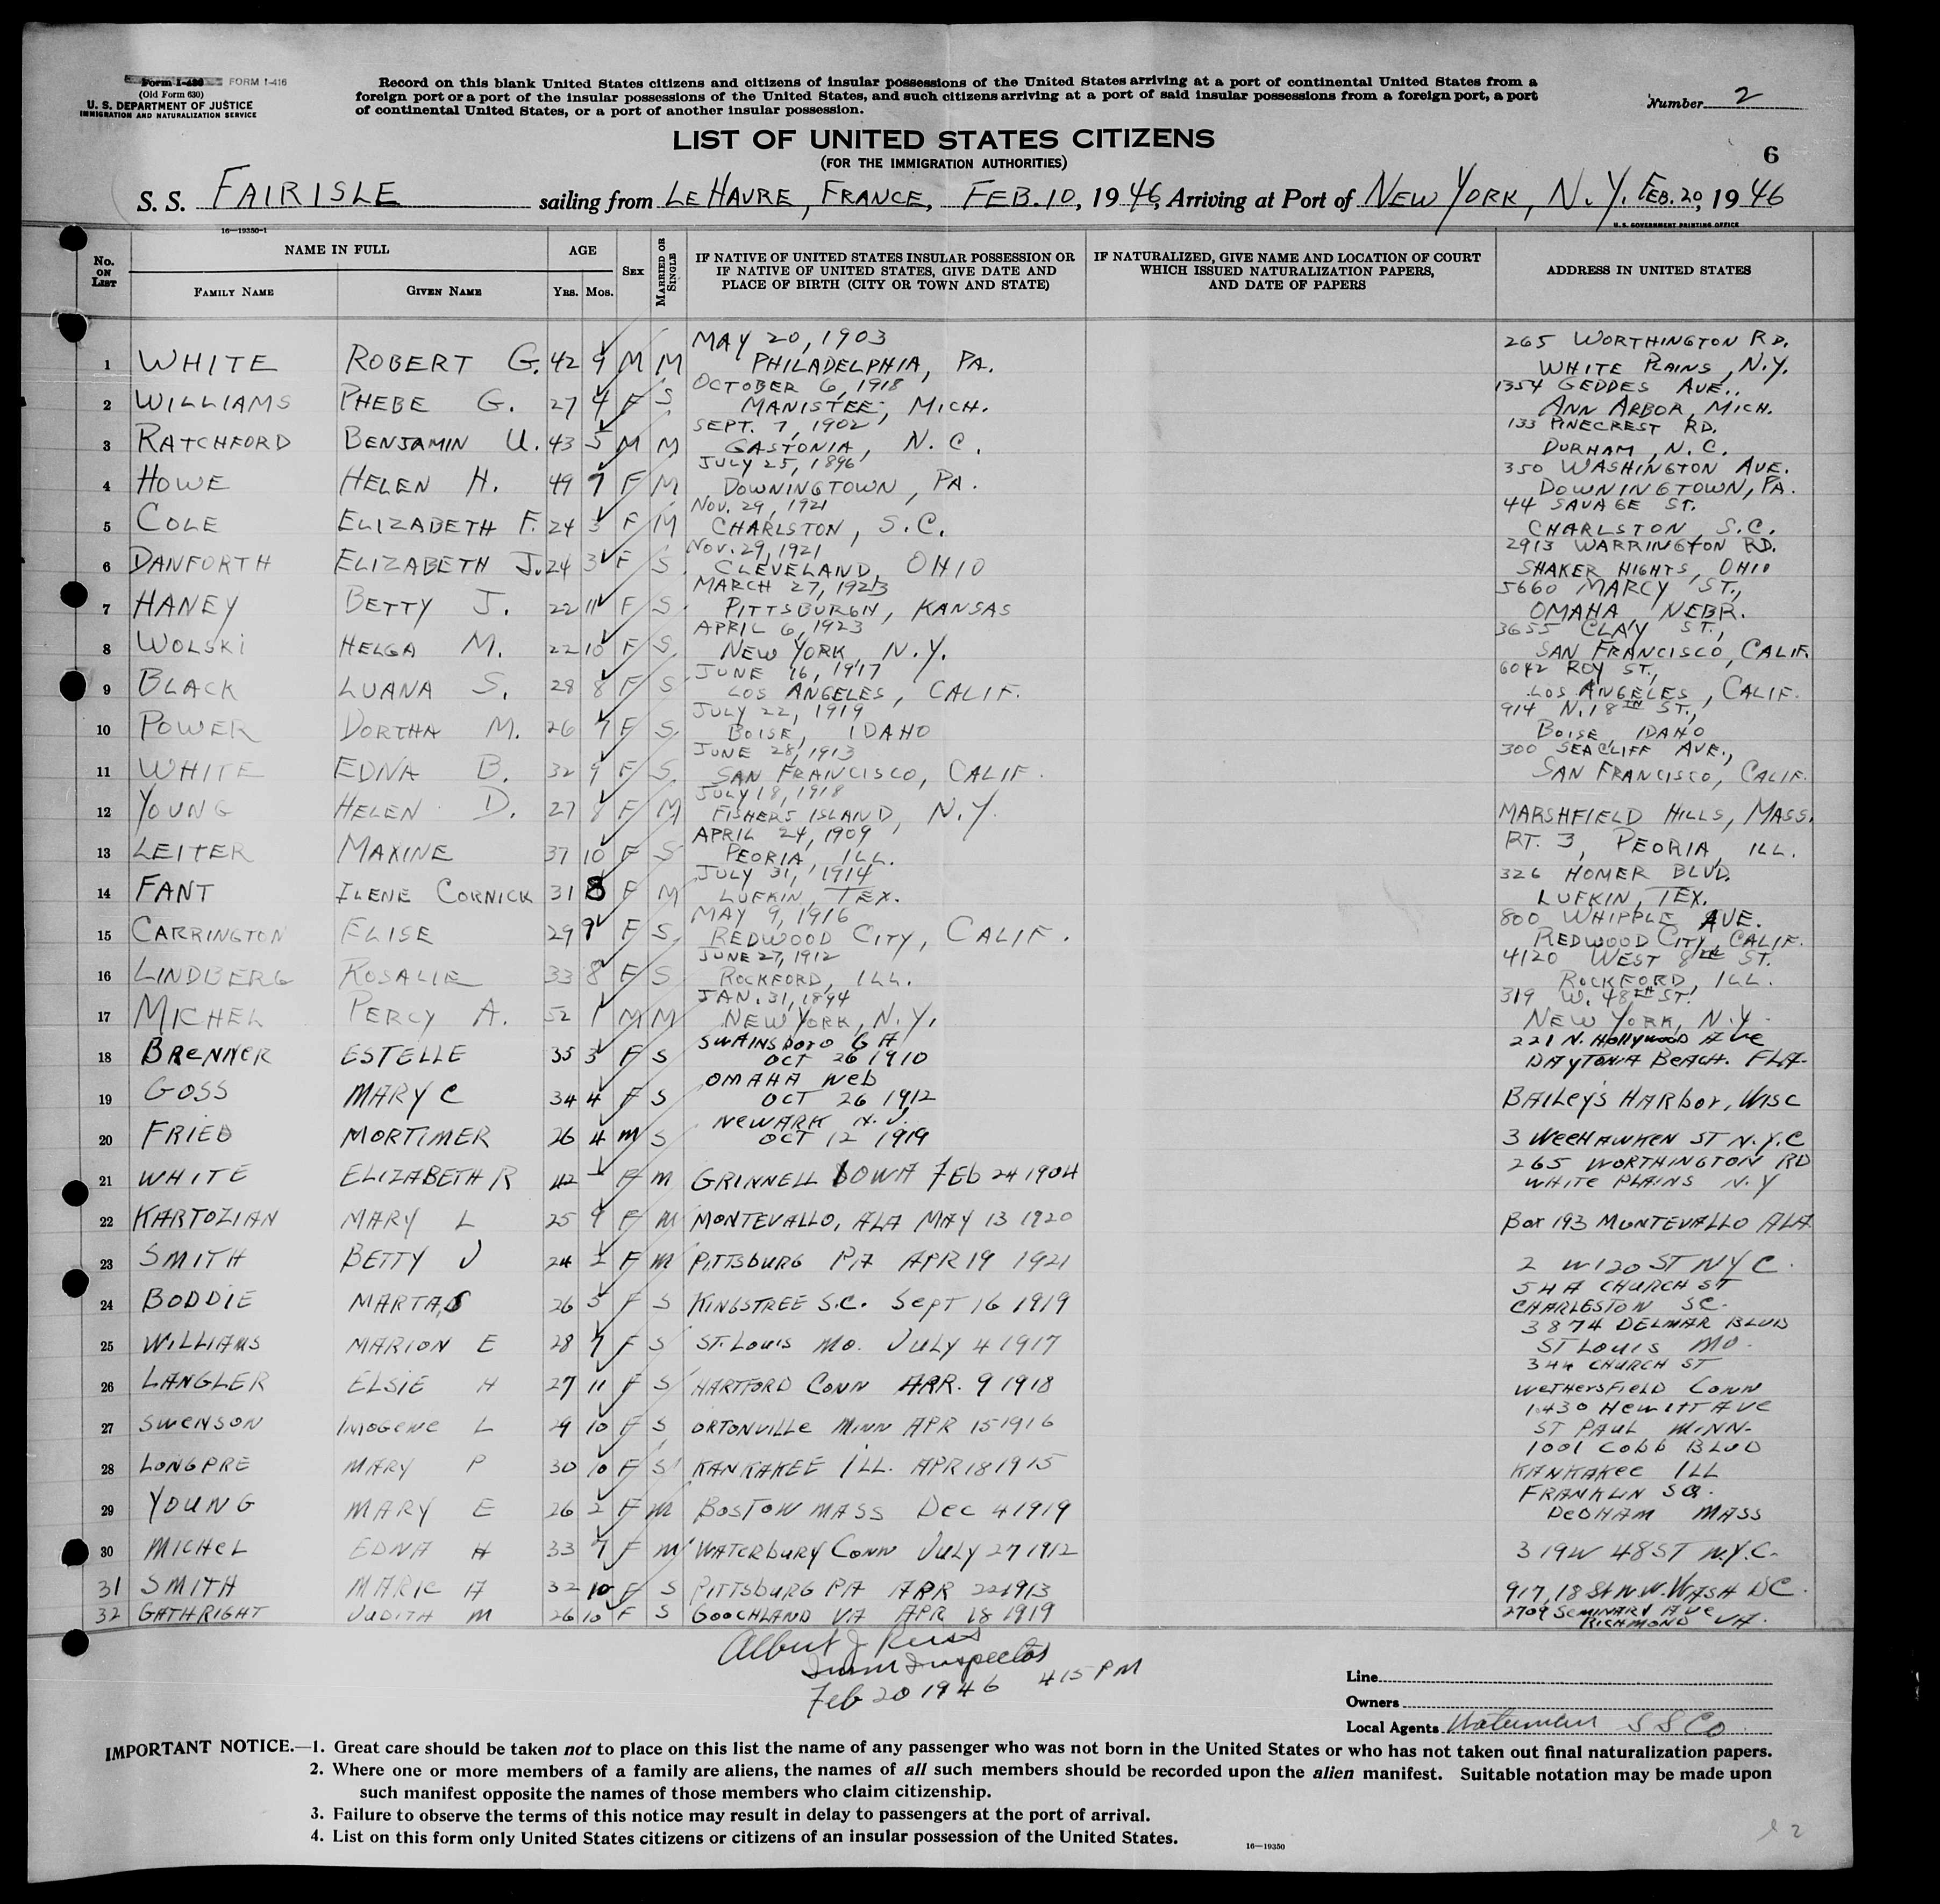 Form I-430 FORM I-416
(Old Form 630)
U. S. DEPARTMENT OF JUSTICE
IMMIGRATION AND NATURALIZATION SERVICE
Record on this blank United States citizens and citizens of insular possessions of the United States arriving at a port of continental United States from a
foreign port or a port of the insular possessions of the United States, and such citizens arriving at a port of said insular possessions from a foreign port, a port
of continental United States, or a port of another insular possession.
Number 2
LIST OF UNITED STATES CITIZENS
(FOR THE IMMIGRATION AUTHORITIES)
6
S. S. FAIRISLE sailing from LE HAVRE, FRANCE, FEB. 10, 1946, Arriving at Port of NEW YORK, N.Y. FEB. 20, 1946
16—19350-1
U. S. GOVERNMENT PRINTING OFFICE
No. ON LIST
NAME IN FULL
FAMILY NAME GIVEN NAME
AGE
YRS. MOS.
SEX
MARRIED OR SINGLE
IF NATIVE OF UNITED STATES INSULAR POSSESSION OR
IF NATIVE OF UNITED STATES, GIVE DATE AND
PLACE OF BIRTH (CITY OR TOWN AND STATE)
IF NATURALIZED, GIVE NAME AND LOCATION OF COURT
WHICH ISSUED NATURALIZATION PAPERS,
AND DATE OF PAPERS
ADDRESS IN UNITED STATES
MAY 20, 1903 265 WORTHINGTON RD.
1 WHITE ROBERT G. 42 9 M M PHILADELPHIA, PA. WHITE PLAINS, N.Y.
OCTOBER 6, 1918 1354 GEDDES AVE.,
2 WILLIAMS PHEBE G. 27 4 F S MANISTEE, MICH. ANN ARBOR, MICH.
SEPT. 7, 1902 133 PINECREST RD.
3 RATCHFORD BENJAMIN U. 43 5 M M GASTONIA, N.C. DURHAM, N.C.
JULY 25, 1896 350 WASHINGTON AVE.
4 HOWE HELEN H. 49 7 F M DOWNINGTOWN, PA. DOWNINGTOWN, PA.
NOV. 29, 1921 44 SAVAGE ST.
5 COLE ELIZABETH F. 24 3 F M CHARLSTON, S.C. CHARLSTON, S.C.
NOV. 29, 1921 2913 WARRINGTON RD.
6 DANFORTH ELIZABETH J. 24 3 F S CLEVELAND, OHIO SHAKER HIGHTS, OHIO
MARCH 27, 1923 5660 MARCY ST.,
7 HANEY BETTY J. 22 11 F S PITTSBURGH, KANSAS OMAHA NEBR.
APRIL 6, 1923 3655 CLAY ST.,
8 WOLSKI HELGA M. 22 10 F S NEW YORK, N.Y. SAN FRANCISCO, CALIF.
JUNE 16, 1917 6042 ROY ST.,
9 BLACK LUANA S. 28 8 F S LOS ANGELES, CALIF. LOS ANGELES, CALIF.
JULY 22, 1919 914 N. 18TH ST.,
10 POWER DORTHA M. 26 7 F S BOISE, IDAHO BOISE, IDAHO
JUNE 28, 1913 300 SEACLIFF AVE.,
11 WHITE EDNA B. 32 9 F S SAN FRANCISCO, CALIF. SAN FRANCISCO, CALIF.
JULY 18, 1918
12 YOUNG HELEN D. 27 8 F M FISHERS ISLAND, N.Y. MARSHFIELD HILLS, MASS.
APRIL 24, 1909
13 LEITER MAXINE 37 10 F S PEORIA, ILL. RT. 3, PEORIA, ILL.
JULY 31, 1914 326 HOMER BLVD.
14 FANT ILENE CORNICK 31 8 F M LUFKIN, TEX. LUFKIN, TEX.
MAY 9, 1916 800 WHIPPLE AVE.
15 CARRINGTON ELISE 29 9 F S REDWOOD CITY, CALIF. REDWOOD CITY, CALIF.
JUNE 27, 1912 4120 WEST 8TH ST.
16 LINDBERG ROSALIE 33 8 F S ROCKFORD, ILL. ROCKFORD, ILL.
JAN. 31, 1894 319 W. 48TH ST.
17 MICHEL PERCY A. 52 1 M M NEW YORK, N.Y. NEW YORK, N.Y.
SWAINSBORO GA 221 N. Hollywood AVe
18 BRENNER ESTELLE 35 3 F S OCT 26 1910 DAYTONA BEACH. FLA.
OMAHA Neb
19 GOSS MARY C 34 4 F S OCT 26 1912 BAILey's HARbor, WISC
NEWARK N.J.
20 FRIED MORTIMER 26 4 M S OCT 12 1919 3 WEEHAWKEN ST N.Y.C
265 WORTHINGTON RD
21 WHITE ELIZABETH R 42 F M GRINNELL IOWA FEB 24 1904 WHITE PLAINS N.Y
22 KARTOZIAN MARY L 25 9 F M MONTEVALLO, ALA MAY 13 1920 Box 193 MONTEVALLO ALA
23 SMITH BETTY J 24 F M PITTSBURG PA APR 19 1921 2 W 120 ST NYC.
54A CHURCH ST
24 BODDIE MARTA S 26 5 F S KINGSTREE S.C. Sept 16 1919 CHARLESTON SC.
3874 DELMAR BLVD
25 WILLIAMS MARION E 28 7 F S ST. LOUIS MO. JULY 4 1917 ST LOUIS MO.
344 CHURCH ST
26 LANGLER ELSIE H 27 11 F S HARTFORD CONN APR. 9 1918 WETHERSFIELD CONN
1430 HEWITT AVE
27 SWENSON IMOGENE L 29 10 F S ORTONVILLE MINN APR 15 1916 ST PAUL MINN.
1001 Cobb BLVD
28 LONGPRE MARY P 30 10 F S KANKAKEE ILL. APR 18 1915 KANKAKEE ILL
FRANKLIN SQ.
29 YOUNG MARY E 26 2 F M BOSTON MASS DEC 4 1919 DEDHAM MASS
30 MICHEL EDNA H 33 7 F M WATERBURY CONN JULY 27 1912 319 W 48 ST N.Y.C.
31 SMITH MARIE A 32 10 F S PITTSBURG PA APR 22 1913 917, 18 St N.W. WASH DC.
32 GATHRIGHT JUDITH M 26 10 F S GOOCHLAND VA APR 18 1919 2709 SEMINARY AVE
RICHMOND VA.
Albert J
Imm Inspector
Feb 20 1946 415 PM
Line
Owners
Local Agents Waterman S S Co.
IMPORTANT NOTICE.—1. Great care should be taken not to place on this list the name of any passenger who was not born in the United States or who has not taken out final naturalization papers.
2. Where one or more members of a family are aliens, the names of all such members should be recorded upon the alien manifest. Suitable notation may be made upon
such manifest opposite the names of those members who claim citizenship.
3. Failure to observe the terms of this notice may result in delay to passengers at the port of arrival.
4. List on this form only United States citizens or citizens of an insular possession of the United States.
16—19350